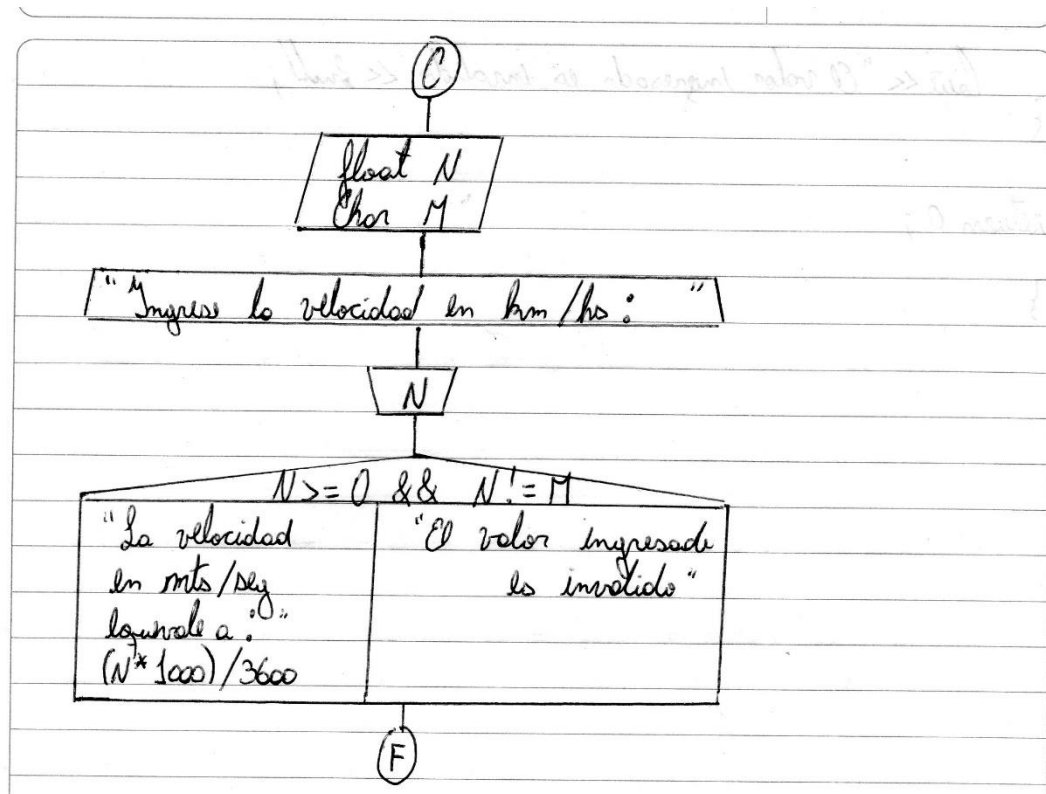 C
float N
Char M
"Ingrese la velocidad en km/hs: "
N
N>=0 && N!=M
"La velocidad
en mts/seg
equivale a: "
(N*1000)/3600
"El valor ingresado
es invalido"
F